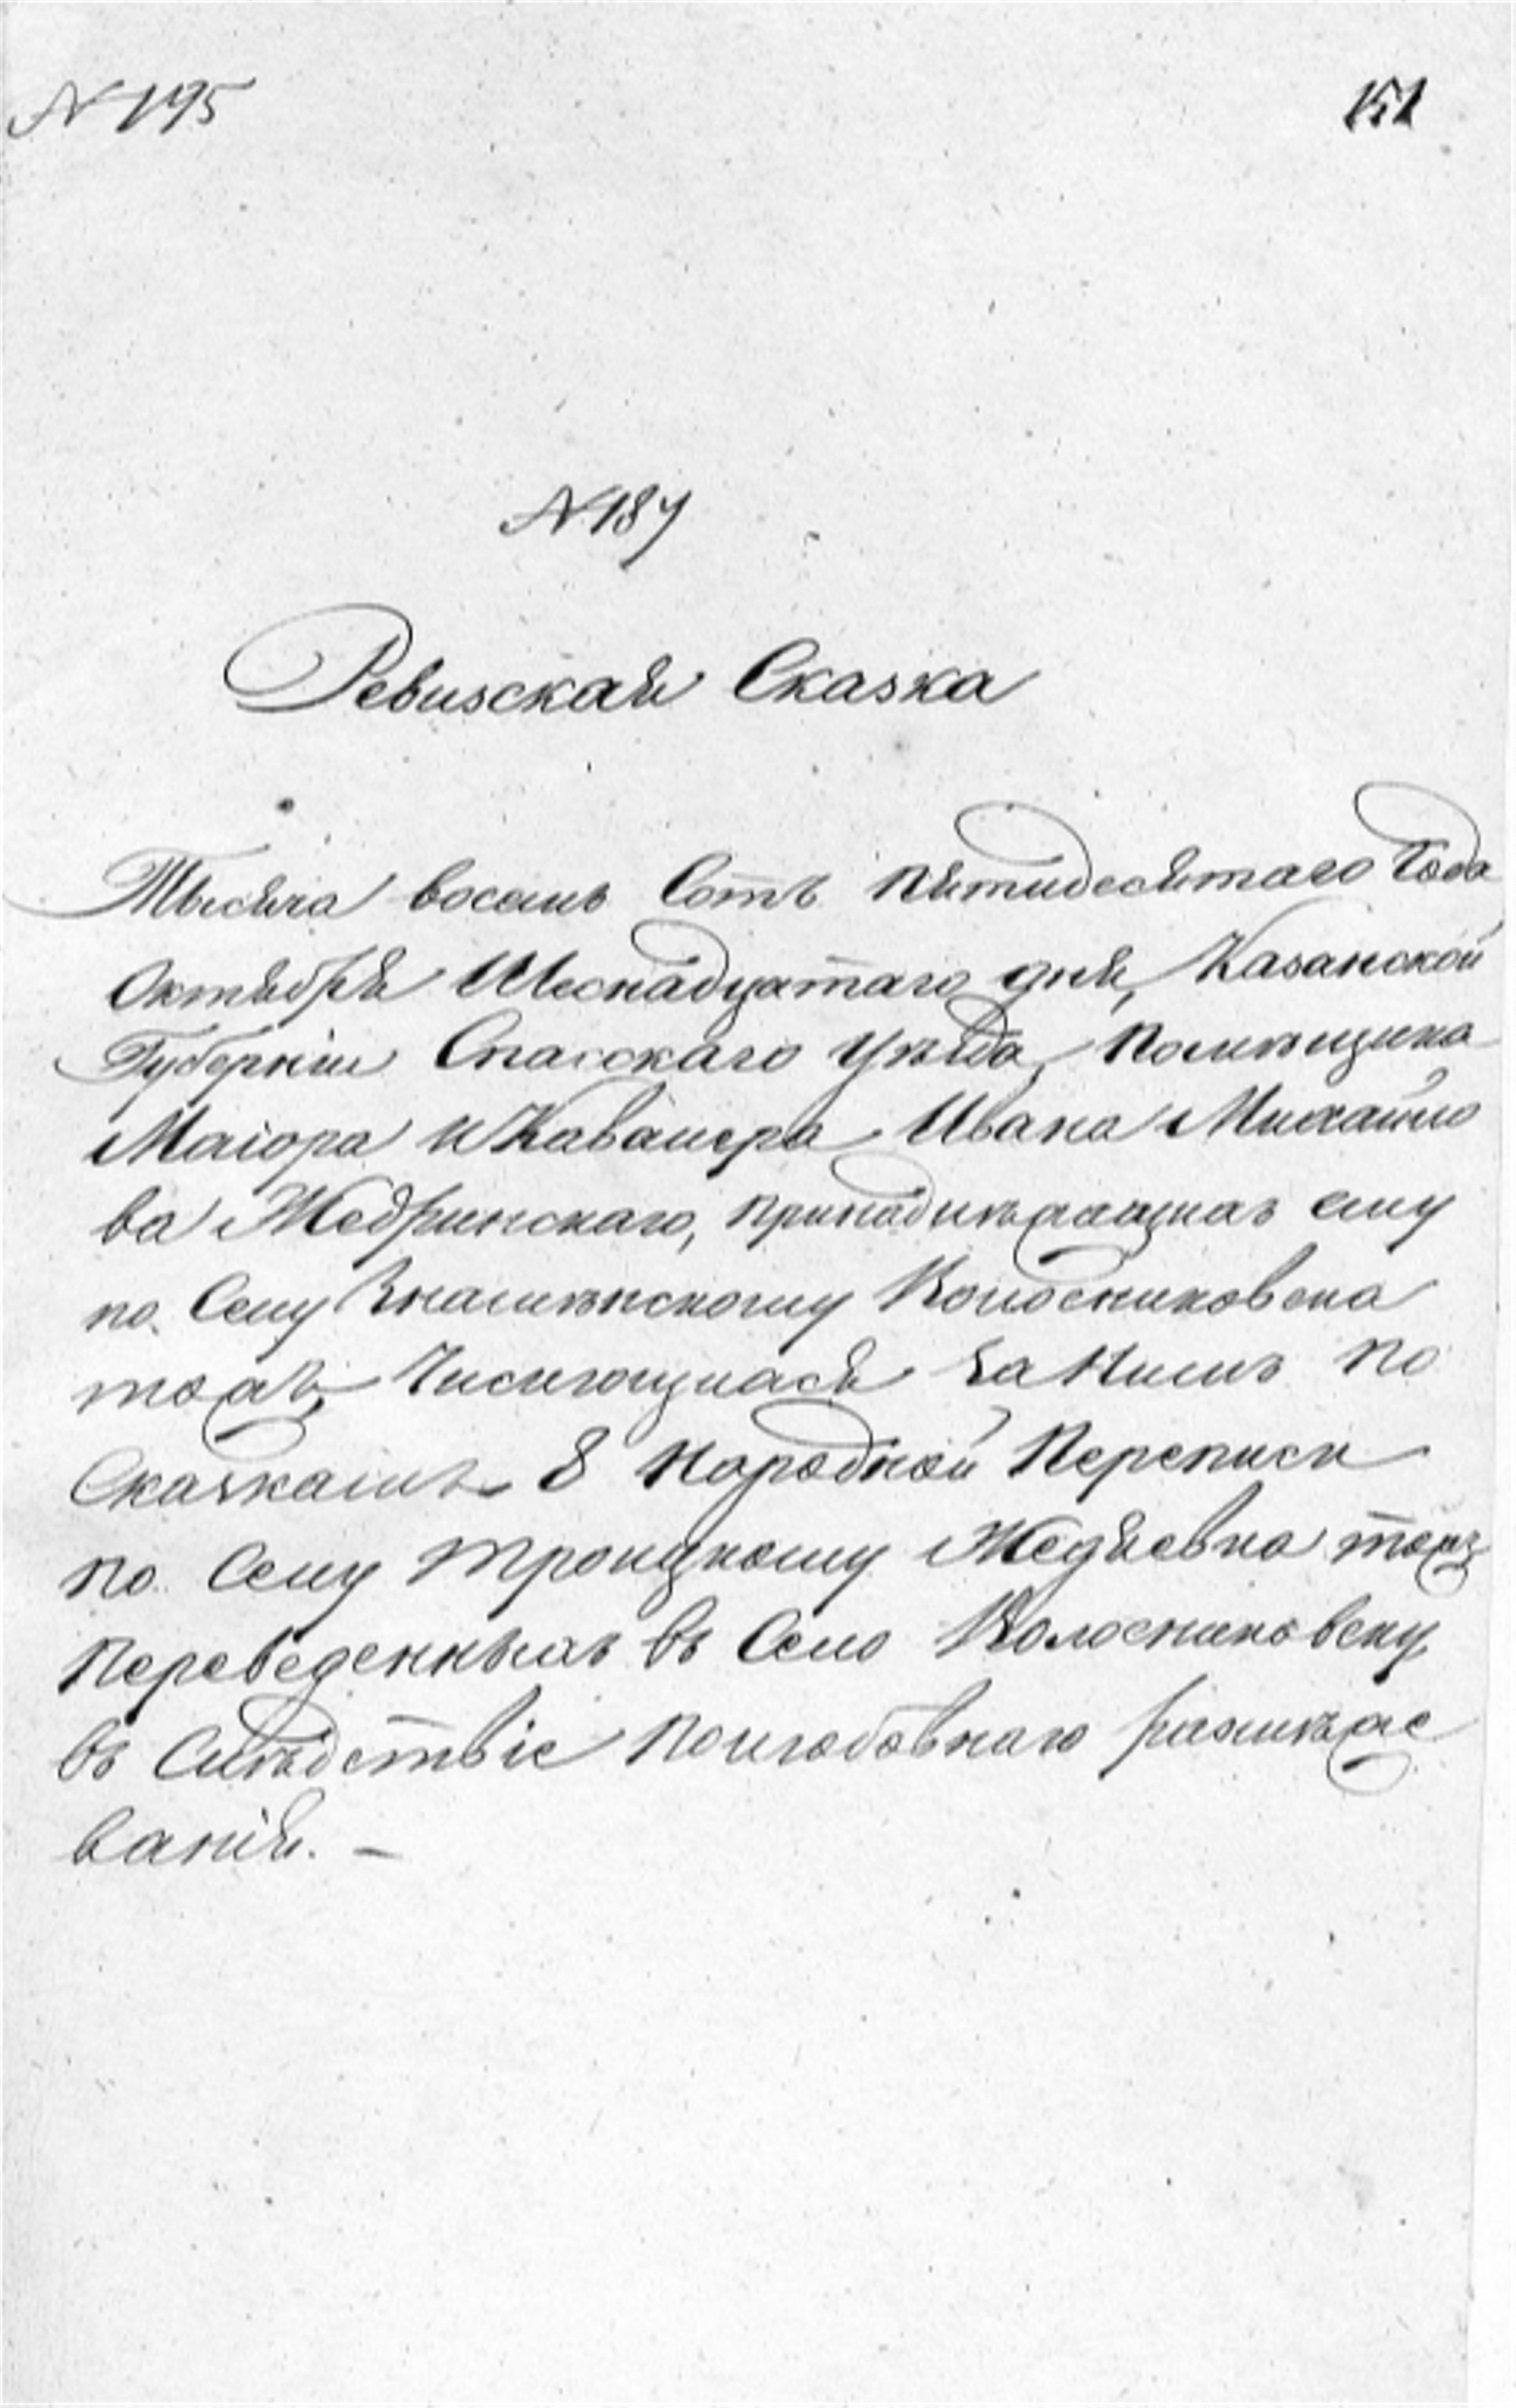 N 195
151
N 187
Ревизская Сказка
Тысяча восемь Сотъ пятидесятаго Года
Октября Шеснадцатаго дня, Казанской
Губерніи Спасскаго Уѣзда, Помѣщика
Маіора и Кавалера Ивана Михайло
ва Жедринскаго, принадлѣжащихъ ему
по Селу Знамѣнскому Колосниковска
тожъ, Числющихся за Нимъ по
Сказкамъ 8 Народной Переписи
по Селу Троицкому Жедяевка тожъ
Переведенныхъ въ Село Колосниковску,
въ Слѣдствіе Полюбовнаго размѣже
ванія. –